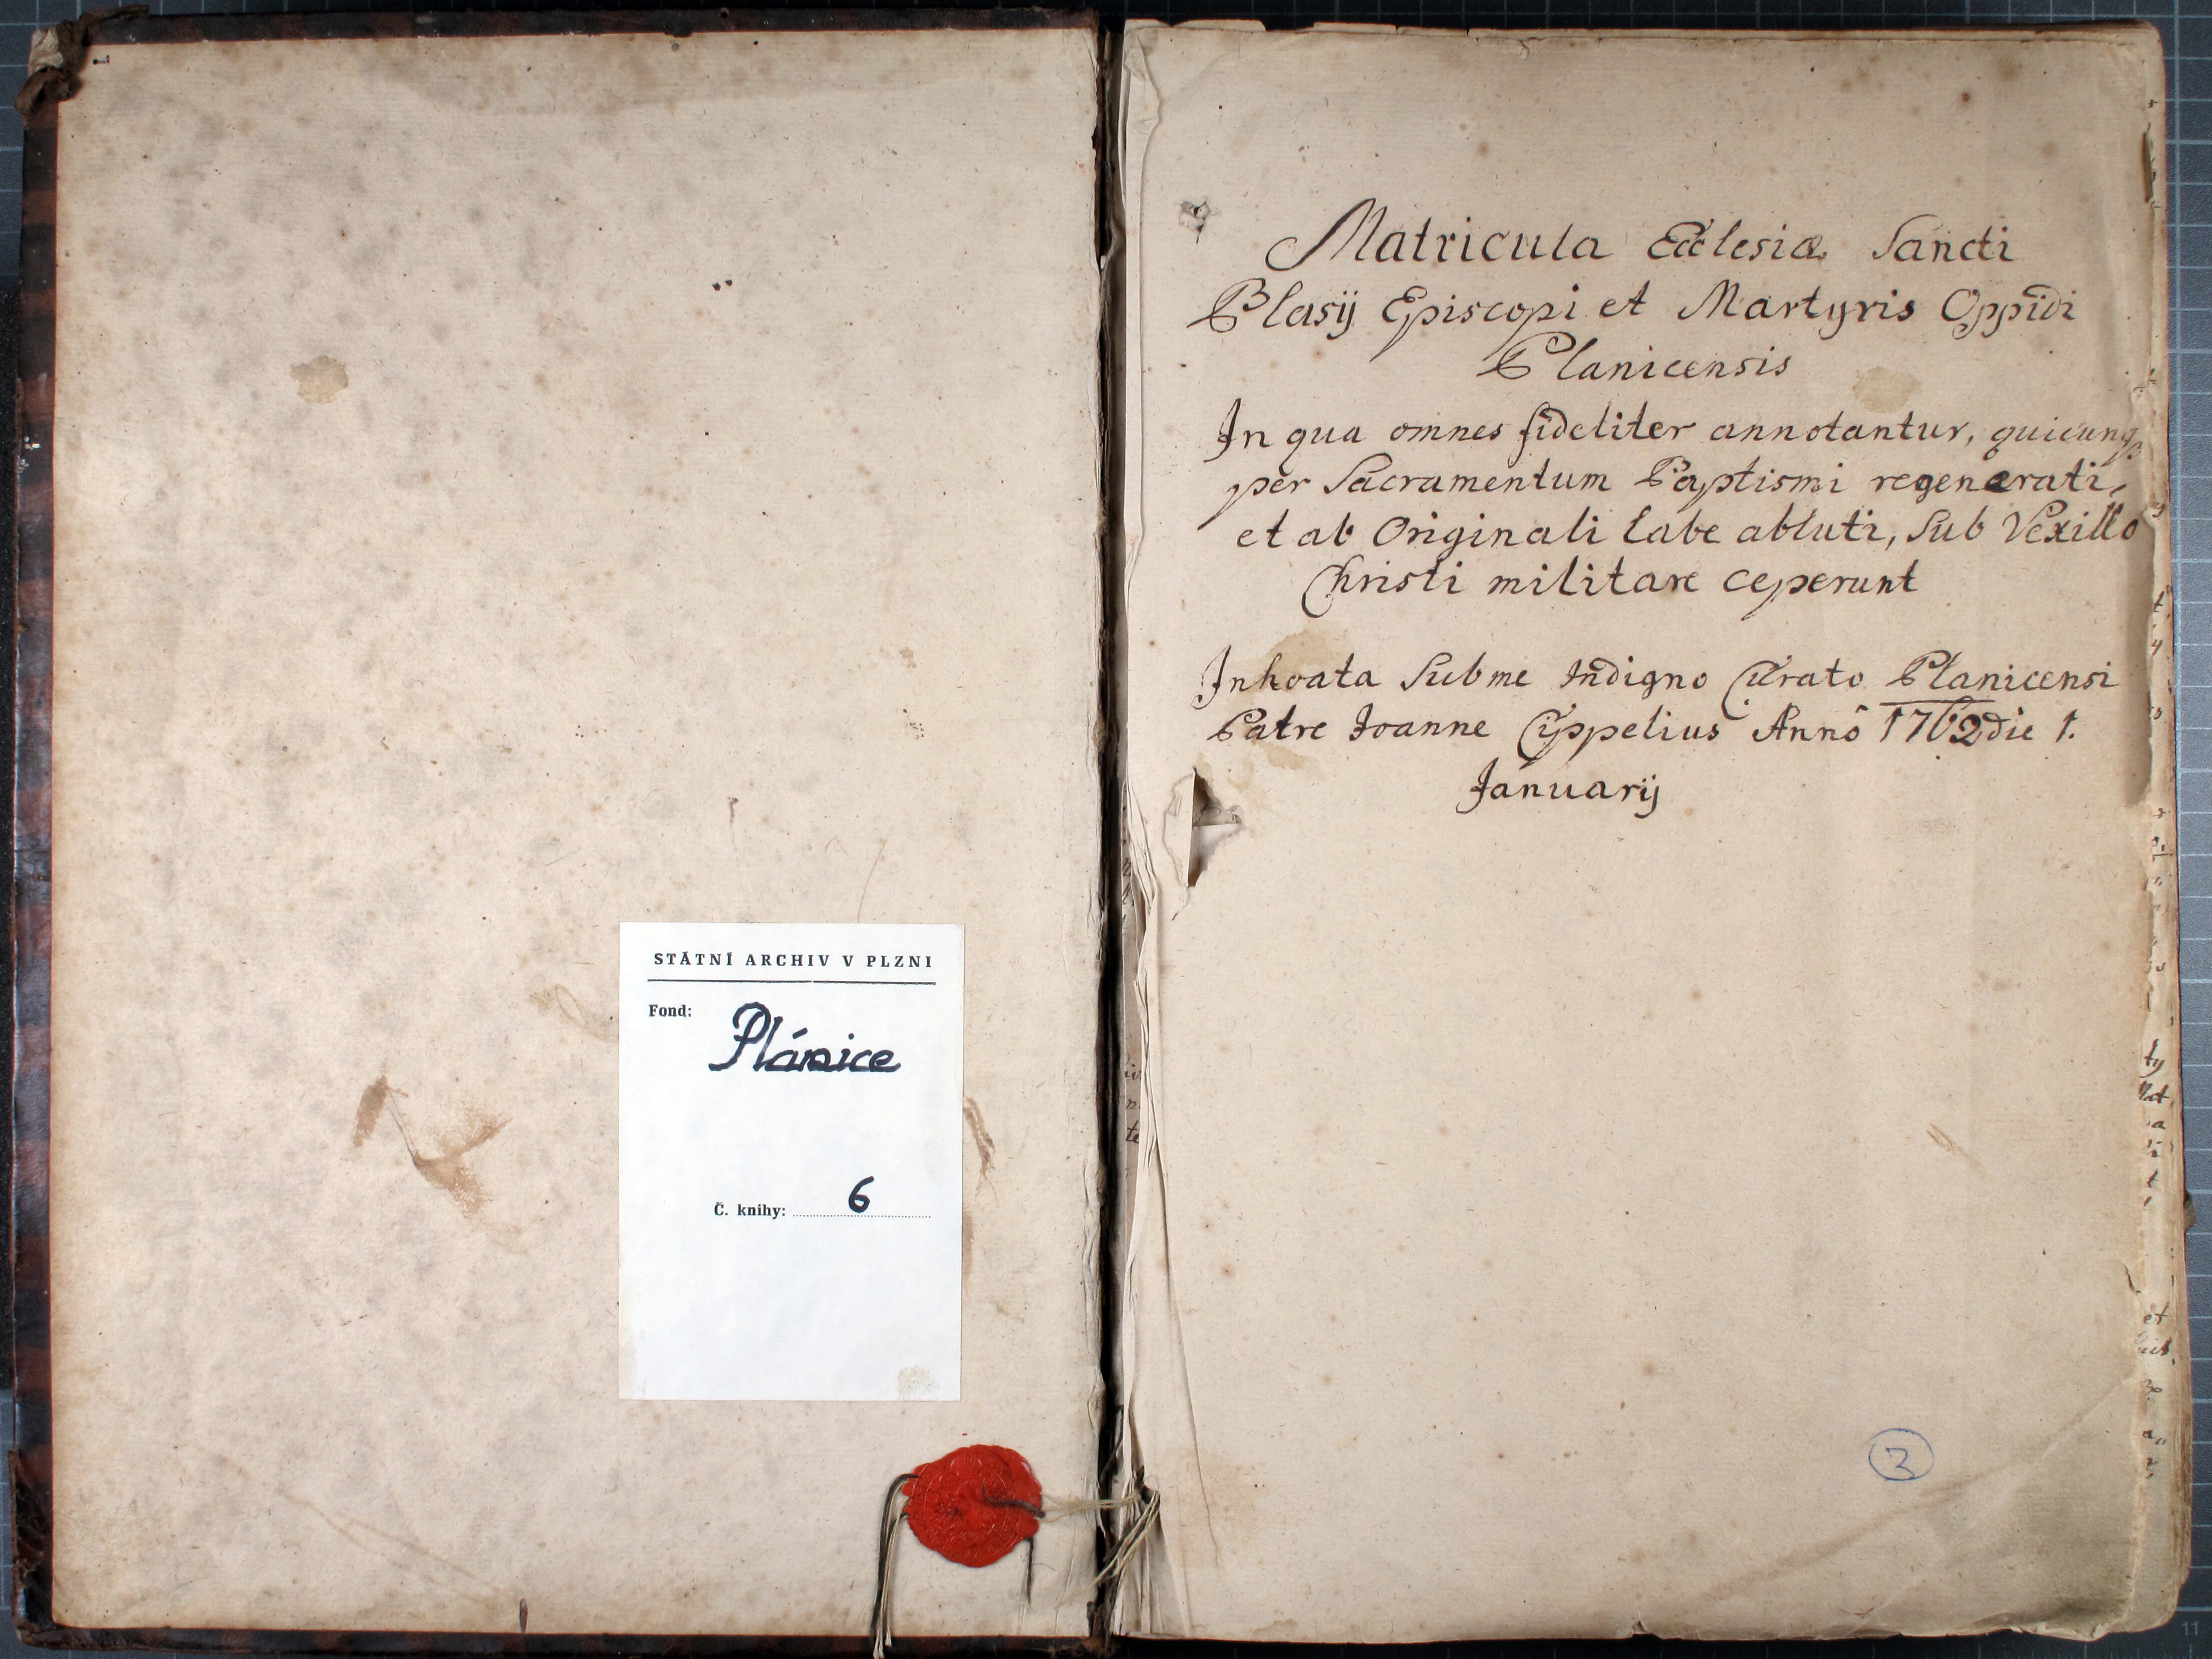 STÁTNÍ ARCHIV V PLZNI
Fond:
Plánice
Č. knihy: 6
Matricula Ecclesiæ Sancti
Blasij Episcopi et Martyris Oppidi
Planicensis
In qua omnes fideliter annotantur, quicunq
per Sacramentum Baptismi regenerati,
et ab Originali labe abluti, Sub Vexillo
Christi militare ceperunt
Inhoata Sub me Indigno Curato Planicensi
Patre Joanne Cippelius Annô 1762 die 1.
Januarij
3
11